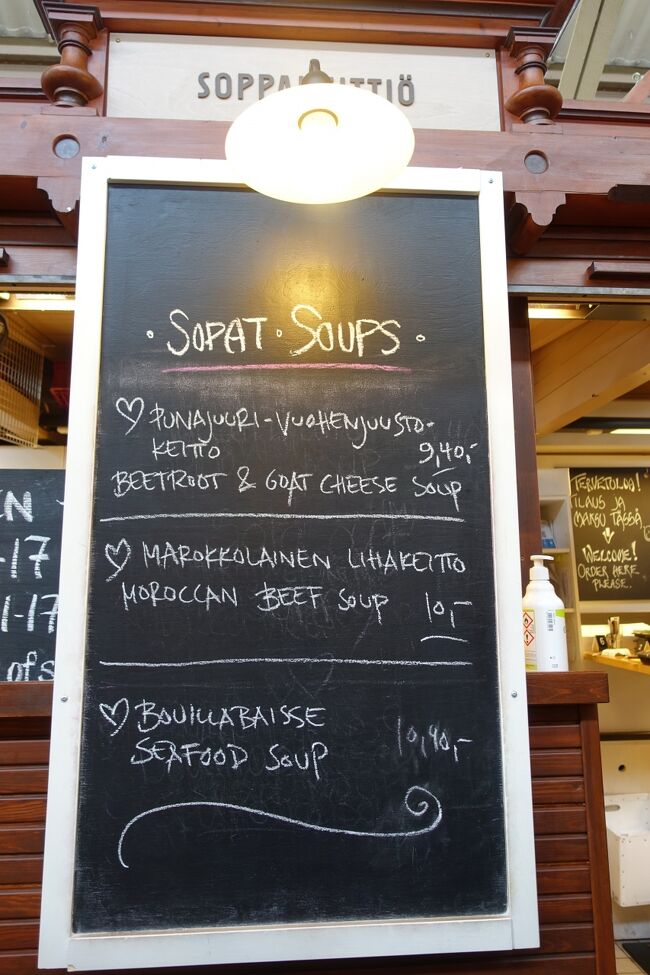 SOPPAKEITTIÖ
· SOPAT · SOUPS ·
♡ PUNAJUURI-VUOHENJUUSTO-
KEITTO 9,40,-
BEETROOT & GOAT CHEESE SOUP
♡ MAROKKOLAINEN LIHAKEITTO
MOROCCAN BEEF SOUP 10,-
♡ BOUILLABAISSE
SEAFOOD SOUP 10,90,-
EN
-17
1-17
of s
TERVETULOA!
TILAUS JA
MAKSU TÄSSÄ
WELCOME!
ORDER HERE
PLEASE.